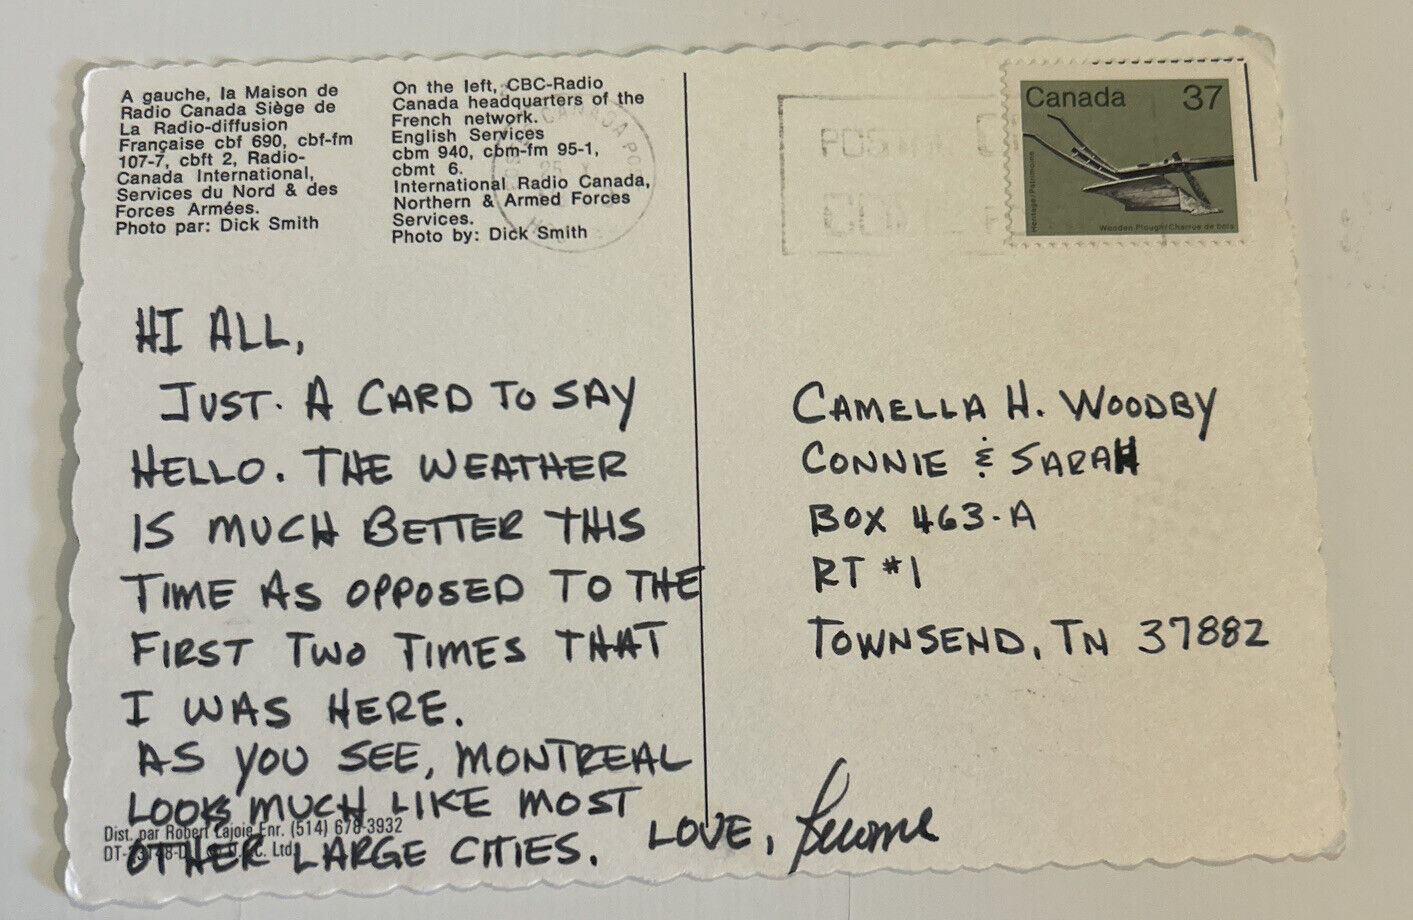 A gauche, la Maison de
Radio Canada Siège de
La Radio-diffusion
Française cbf 690, cbf-fm
107-7, cbft 2, Radio-
Canada International,
Services du Nord & des
Forces Armées.
Photo par: Dick Smith
On the left, CBC-Radio
Canada headquarters of the
French network.
English Services
cbm 940, cbm-fm 95-1,
cbmt 6.
International Radio Canada,
Northern & Armed Forces
Services.
Photo by: Dick Smith
CANADA
Canada 37
Heritage/Patrimoine
Wooden Plough/Charrue de bois
HI ALL,
JUST. A CARD TO SAY
HELLO. THE WEATHER
IS MUCH BETTER THIS
TIME AS OPPOSED TO THE
FIRST TWO TIMES THAT
I WAS HERE.
AS YOU SEE, MONTREAL
LOOKS MUCH LIKE MOST
OTHER LARGE CITIES.
LOVE, Jerome
Dist. par Robert Lajoie Enr. (514) 678-3932
Ltd.
CAMELLA H. WOODBY
CONNIE & SARAH
BOX 463-A
RT #1
TOWNSEND, TN 37882